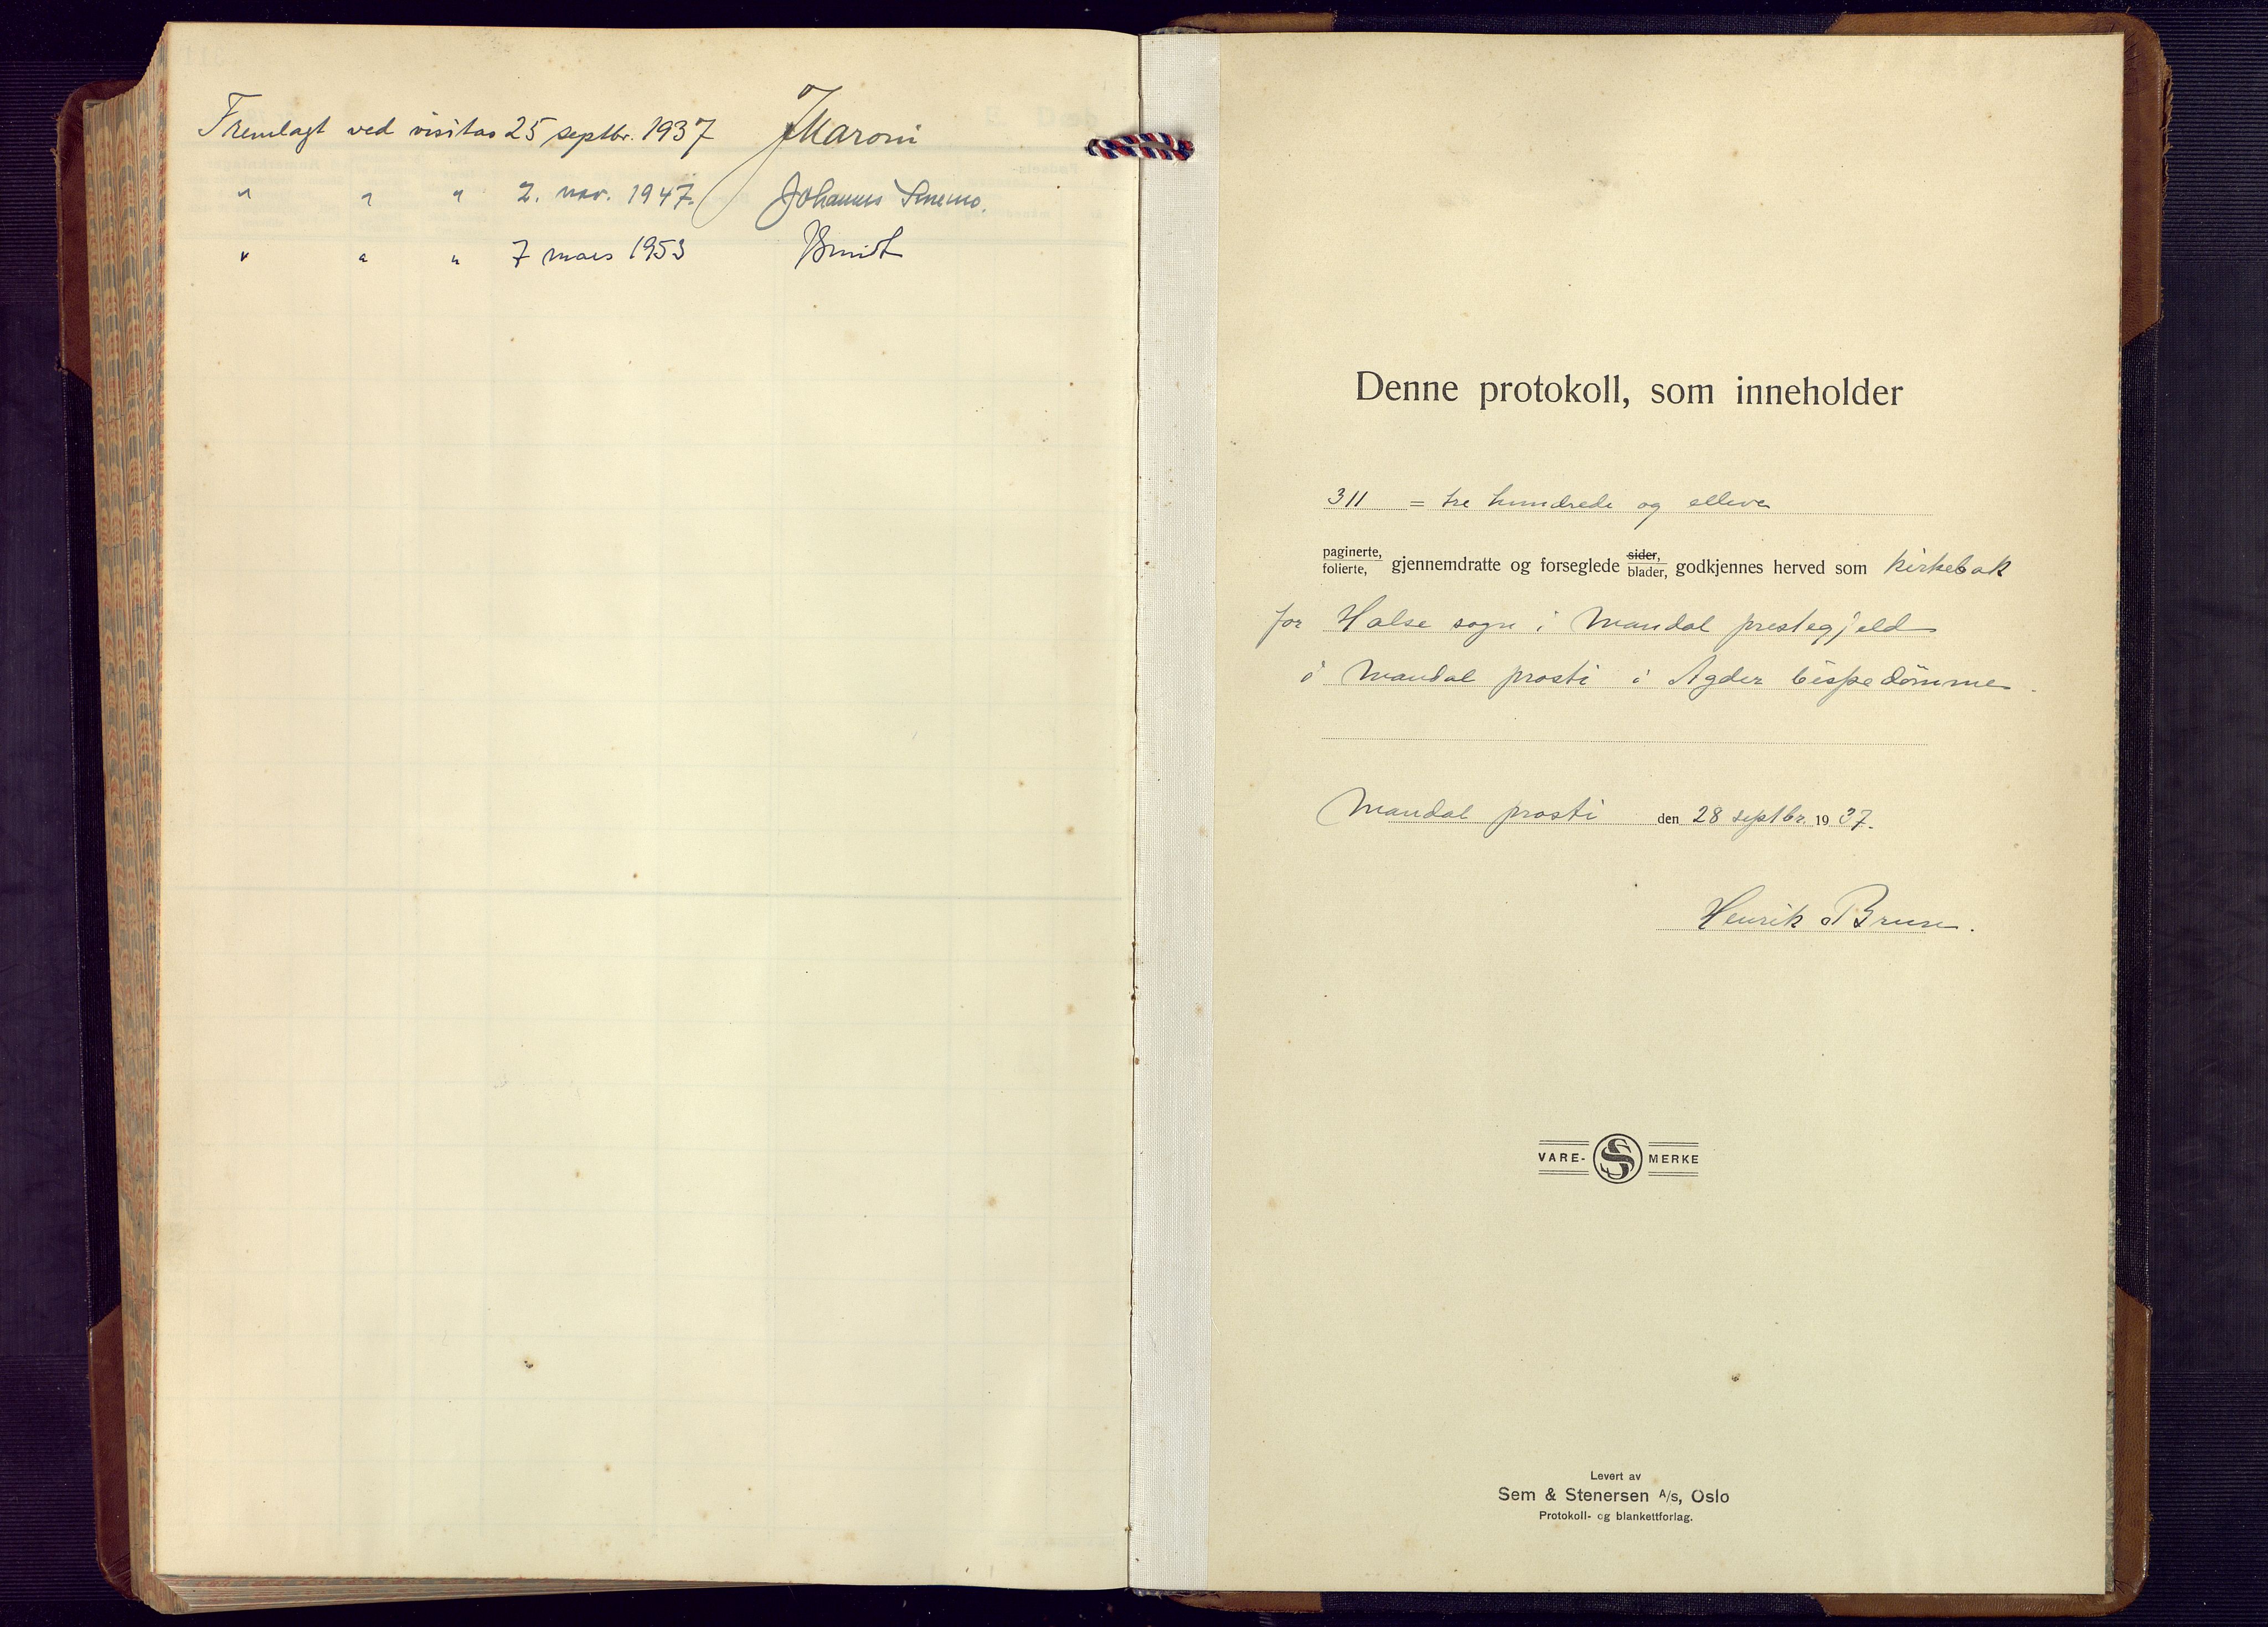 Fremlagt ved visitas 25 septbr. 1937 JMaroni
" " " 2. nov. 1947. Johannes Smemo.
" " " 7 mars 1953
Denne protokoll, som inneholder
311 = tre hundrede og elleve
paginerte,
folierte, gjennemdratte og forseglede sider, blader, godkjennes herved som kirkebok
for Halse sogn i Mandal prestegjeld
i Mandal prosti i Agder bispedömme.
Mandal prosti den 28 septbr. 1937.
Henrik Bruun.
VARE- S MERKE
Levert av
Sem & Stenersen A/s, Oslo
Protokoll- og blankettforlag.